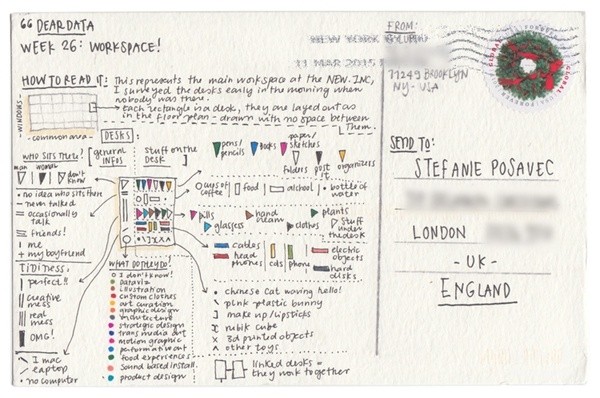 “ DEAR DATA
WEEK 26: WORKSPACE!
HOW TO READ IT: This represents the main workspace at the NEW INC,
I surveyed the desks early in the morning when
nobody was there.
each rectangle is a desk, they are layed out as
in the floor plan - drawn with no space between
them.
WINDOWS
common area
DESKS:
WHO SITS THERE?
man woman don't know
• no idea who sits there
— never talked
= occasionally talk
≡ friends!
I me
+ my boyfriend
TIDINESS:
| perfect!!
|| creative mess
||| real mess
OMG!
\ I mac
/ laptop
• no computer
general infos
stuff on the desk
WHAT DO THEY DO!
O I don't know!
dataviz
illustration
custom clothes
art curation
graphic design
architecture
strategic design
trans media art
motion graphic
performative art
food experiences
sound based install.
product design
pens/pencils
books
paper/sketches
folders
post it
organizers
cups of coffee
food
alcohol
bottle of water
pills
hand cream
plants
glasses
clothes
stuff under the desk
cables
head phones
cds
phone
electric objects
hard disks
• chinese cat waving hello!
\ pink plastic bunny
] make up/lipsticks
rubik cube
x 3d printed objects
^ other toys
linked desks =
they work together
FROM:
NEW YORK
11 MAR 2015
11249 BROOKLYN
NY - USA
GLOBAL
FOREVER
SEND TO:
STEFANIE POSAVEC
LONDON
- UK -
ENGLAND